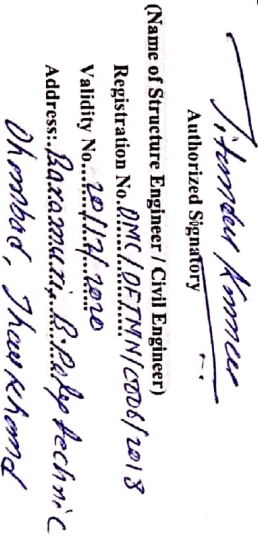 Jitender Kumar
Authorized Signatory
(Name of Structure Engineer / Civil Engineer)
Registration No. DMC/OFTMN/C006/2018
Validity No. 20/12/2020
Address:. Baramuri, B. Polytechnic
Dhanbad, Jharkhand